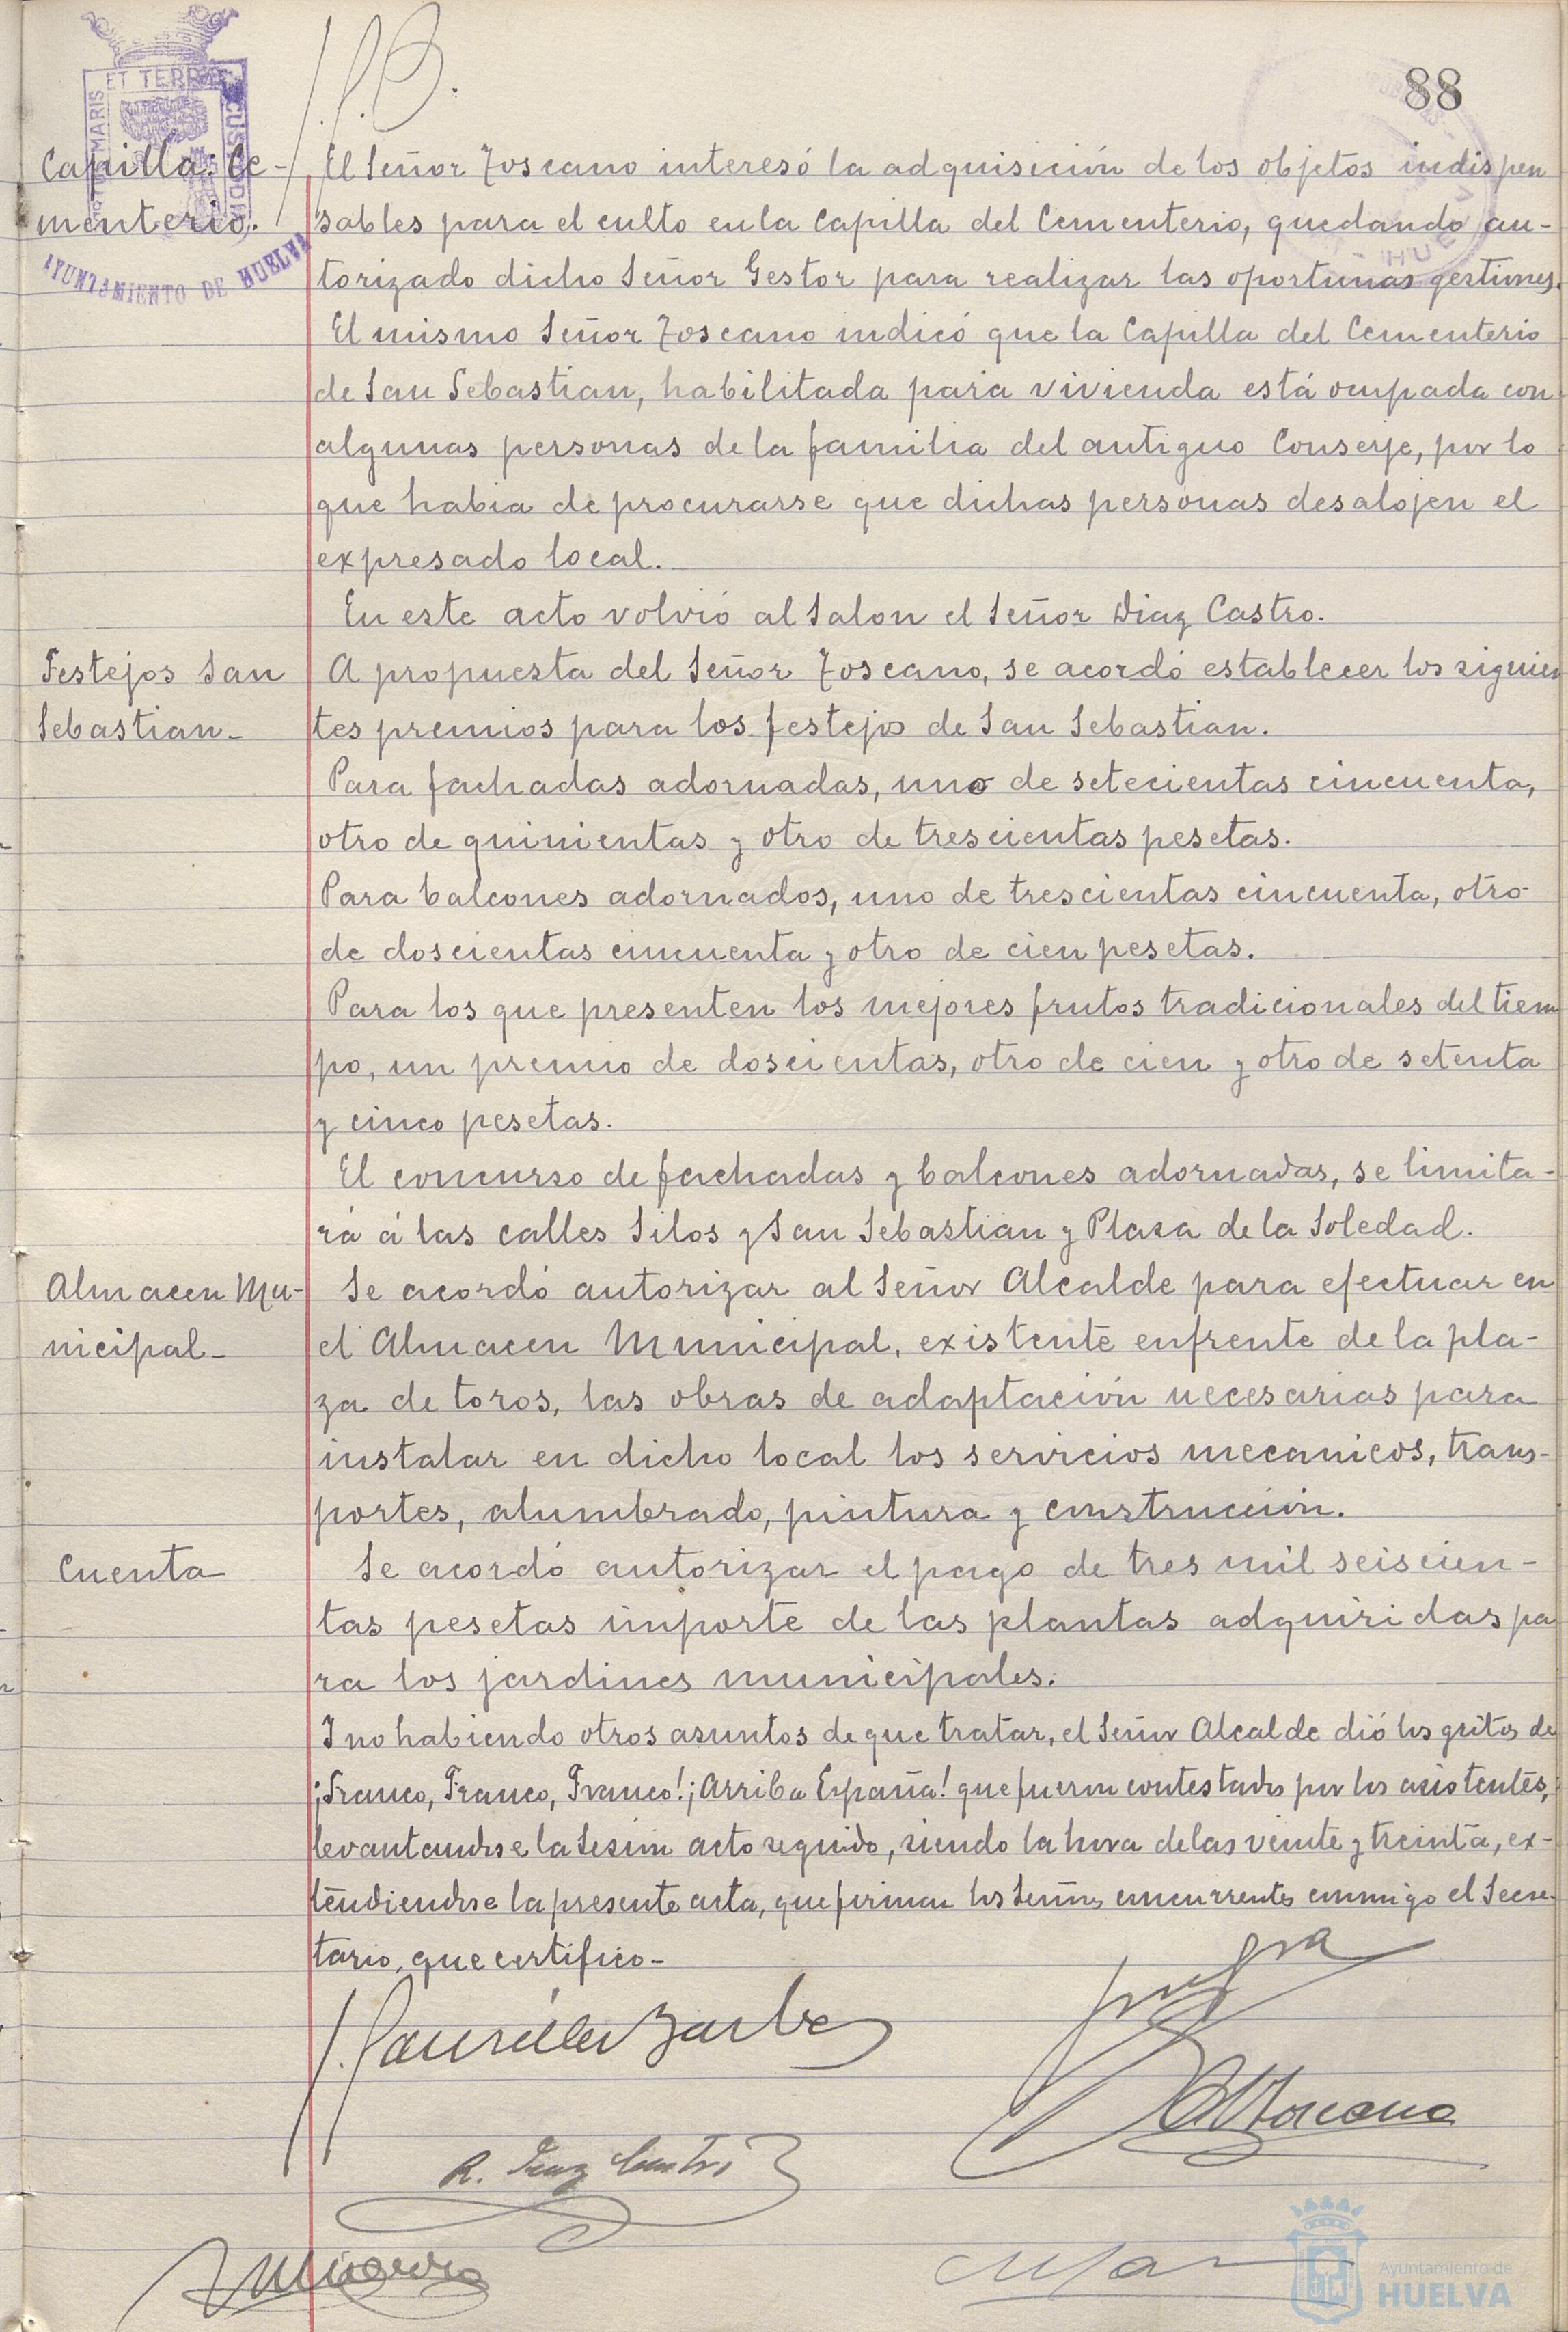 88
Capilla: Ce-
menterio.
El Señor Toscano interesó la adquisición de los objetos indispen
sables para el culto en la Capilla del Cementerio, quedando au-
torizado dicho Señor Gestor para realizar las oportunas gestiones.
El mismo Señor Toscano indicó que la Capilla del Cementerio
de San Sebastian, habilitada para vivienda está ocupada con
algunas personas de la familia del antiguo Conserje, por lo
que habia de procurarse que dichas personas desalojen el
expresado local.
En este acto volvió al Salon el Señor Diaz Castro.
Festejos San
Sebastian-
A propuesta del Señor Toscano, se acordó establecer los siguien
tes premios para los festejos de San Sebastian.
Para fachadas adornadas, uno de setecientas cincuenta,
otro de quinientas y otro de trescientas pesetas.
Para balcones adornados, uno de trescientas cincuenta, otro
de doscientas cincuenta y otro de cien pesetas.
Para los que presenten los mejores frutos tradicionales del tiem
po, un premio de doscientas, otro de cien y otro de setenta
y cinco pesetas.
El concurso de fachadas y balcones adornadas, se limita-
rá á las calles Silos y San Sebastian y Plaza de la Soledad.
Almacen Mu-
nicipal-
Se acordó autorizar al Señor Alcalde para efectuar en
el Almacen Municipal, existente enfrente de la pla-
za de toros, las obras de adaptación necesarias para
instalar en dicho local los servicios mecanicos, trans-
portes, alumbrado, pintura y construcción.
Cuenta
Se acordó autorizar el pago de tres mil seiscien-
tas pesetas importe de las plantas adquiridas pa
ra los jardines municipales.
Y no habiendo otros asuntos de que tratar, el Señor Alcalde dió los gritos de
¡Franco, Franco, Franco! ¡Arriba España! que fueron contestados por los asistentes,
levantandose la sesion acto seguido, siendo la hora de las veinte y treinta, ex-
tendiendose la presente acta, que firman los Señores concurrentes conmigo el Secre-
tario, que certifico-
R. Diaz Castro
Toscano
ET TERRAE CUSTODIA
MARIS
AYUNTAMIENTO DE HUELVA
Ayuntamiento de
HUELVA